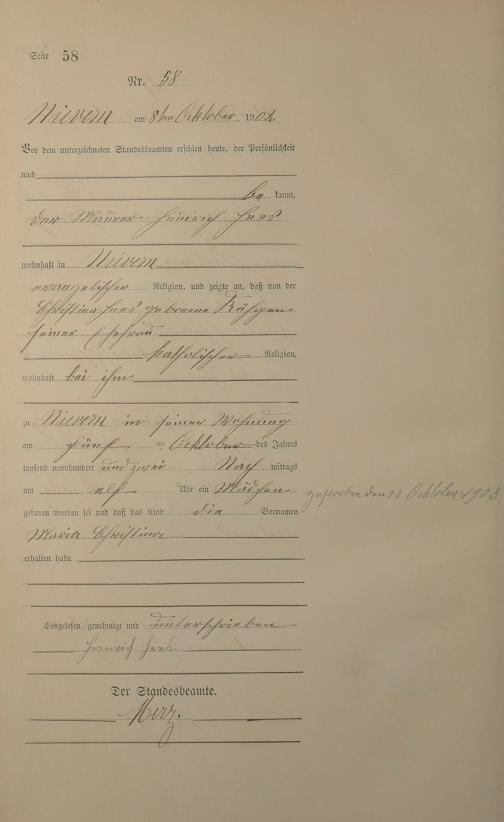 Seite 58
Nr. 58
Nievern am 8ten Oktober 1902.
Vor dem unterzeichneten Standesbeamten erschien heute, der Persönlichkeit
nach
be kannt,
der Maurer Heinrich Hees
wohnhaft in Nievern
evangelischer Religion, und zeigte an, daß von der
Christina Hees geborene
seiner Ehefrau
katholischer Religion,
wohnhaft bei ihm
zu Nievern in seiner Wohnung
am fünf = Oktober des Jahres
tausend neunhundert und zwei Nach mittags
um elf Uhr ein Mädchen gestorben den 23 Oktober 1903.
geboren worden sei und daß das Kind die Vornamen
Maria Christina
erhalten habe.
Vorgelesen, genehmigt und unterschrieben
Heinrich Hees.
Der Standesbeamte.
Merz.